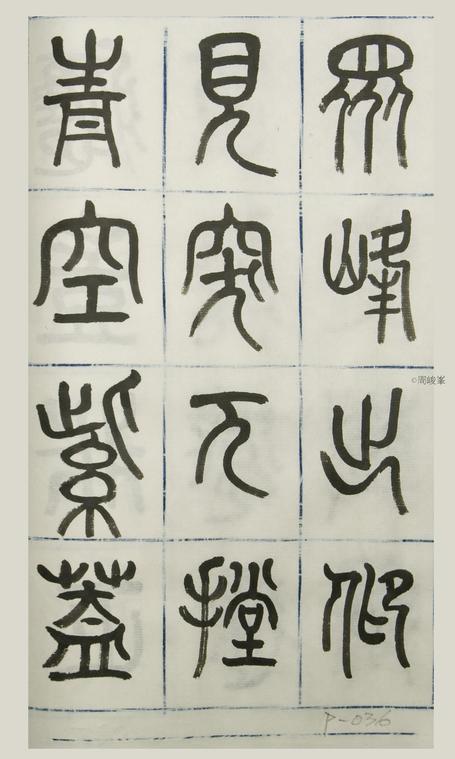 眾峰出仰
見突兀撐
青空紫蓋
P-036
©周峻峯